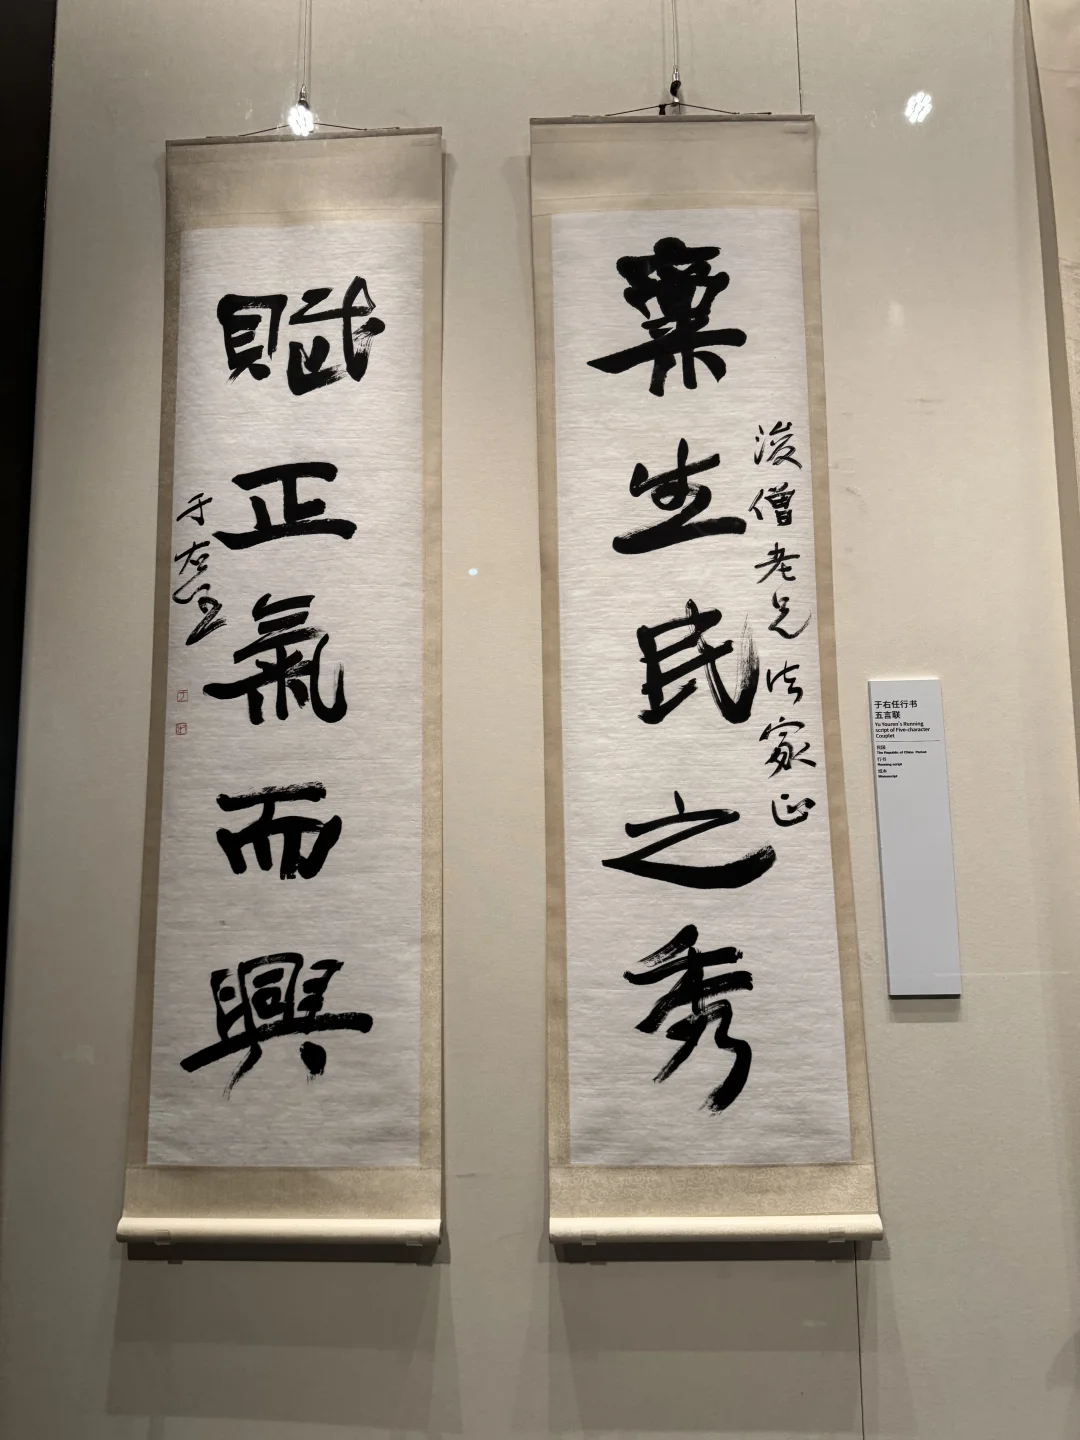 稟生民之秀
浚僧老兄法家正
賦正氣而興
于右任
于右任行书
五言联
Yu Youren's Running
script of Five-character
Couplet
民国
The Republic of China Period
行书
Running script
Manuscript